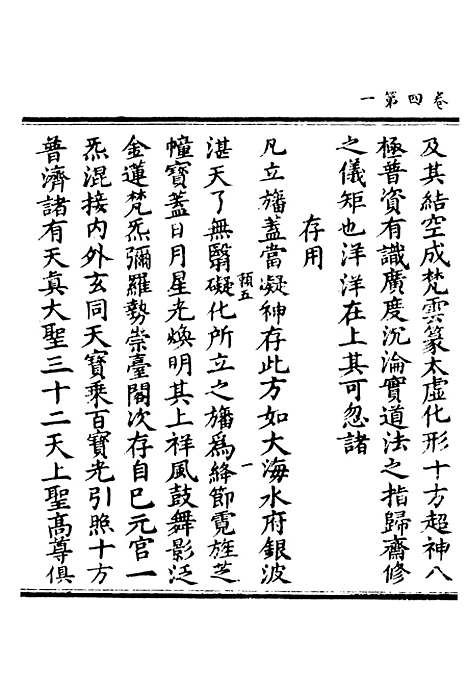 卷四第一
及其結空成梵雲篆太虛化形十方超神八
極普資有識廣度沉淪實道法之指歸齋修
之儀矩也洋洋在上其可忽諸
存用
凡立旛蓋當凝神存此方如大海水府銀波
湛天了無翳礙化所立之旛爲絳節霓旌芝
幢寶蓋日月星光煥明其上祥風鼓舞影泛
金蓮梵炁彌羅勢崇臺閣次存自己元官一
炁混接內外玄同天寶乘百寶光引照十方
普濟諸有天真大聖三十二天上聖高尊俱
頨五
一